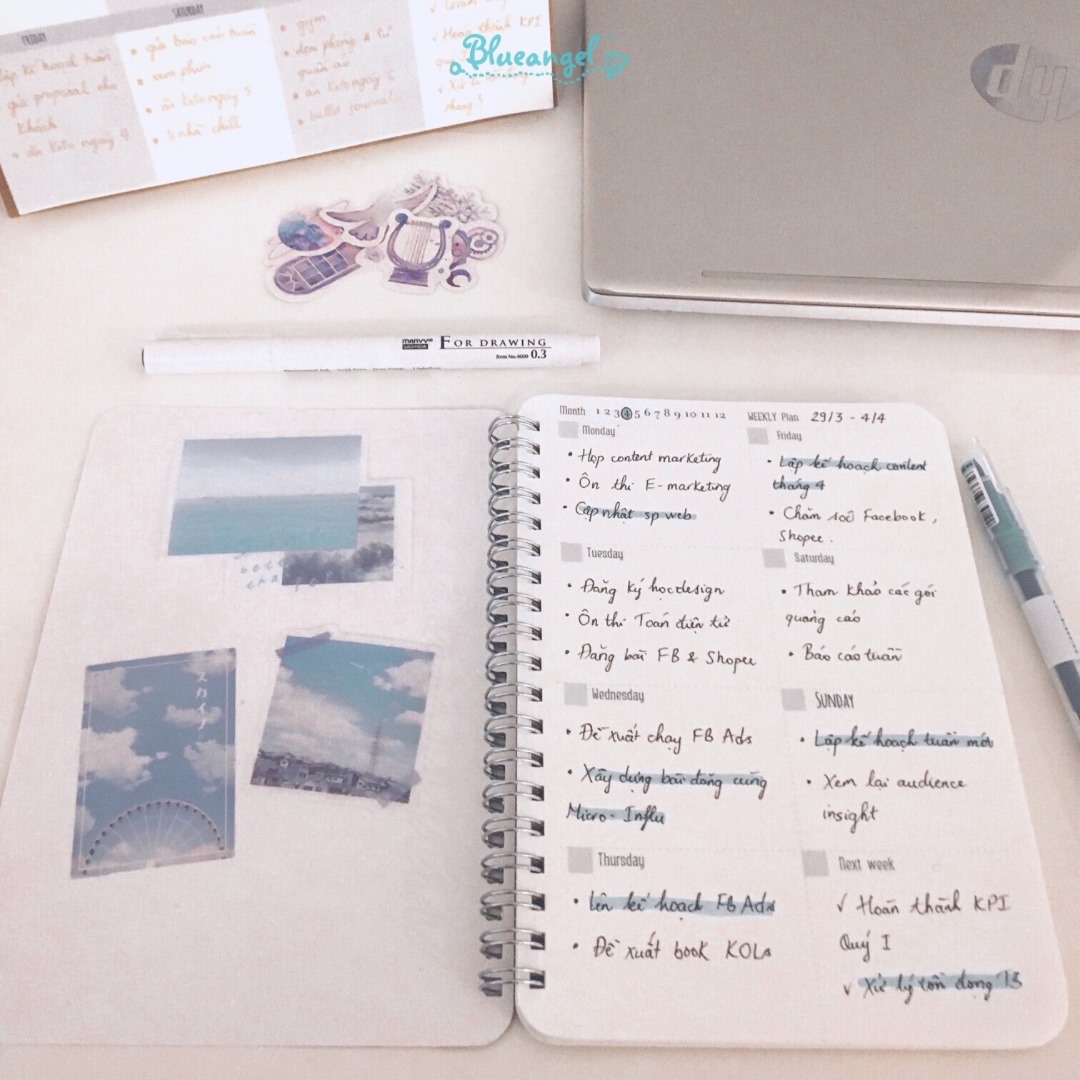 SATURDAY
FRIDAY
gửi báo cáo tuần
xem phim
ăn keto ngày 5
ở nhà chill
gym
dọn phòng & tủ
quần áo
ăn keto ngày 6
bullet journal
✓ Hoàn thành KPI
tháng 3
gửi proposal cho
khách
ăn keto ngày 4
Blueangel
hp
MARVY
UCHIDA
FOR DRAWING
Item No.4600 0.3
Month 1 2 3 4 5 6 7 8 9 10 11 12 WEEKLY Plan 29/3 - 4/4
Monday
• Họp content marketing
• Ôn thi E-marketing
• Cập nhật sp web
Tuesday
• Đăng ký học design
• Ôn thi Toán điện tử
• Đăng bài FB & Shopee
Wednesday
• Đề xuất chạy FB Ads
• Xây dựng bài đăng cùng
Micro-Influ
Thursday
• Lên kế hoạch FB Ads
• Đề xuất book KOLs
Friday
• Lập kế hoạch content
tháng 4
• Chăm sóc Facebook,
Shopee.
Saturday
• Tham khảo các gói
quảng cáo
• Báo cáo tuần
SUNDAY
• Lập kế hoạch tuần mới
• Xem lại audience
insight
Next week
✓ Hoàn thành KPI
Quý I
✓ Xử lý tồn đọng T3